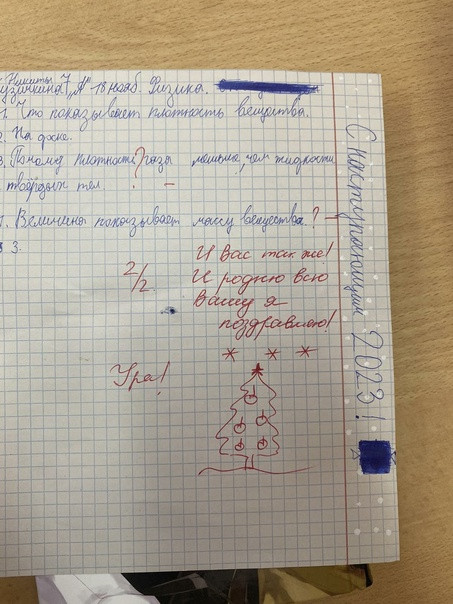 Никиты 7 „А" 18 нояб. Физика.
1. Что показывает плотность вещества.
2. На доске.
3. Почему плотность газа меньше, чем жидкости
твёрдых тел ? –
1. Величина показывает массу вещества. ? –
3.
2/2
И Вас так же!
И родню всю
Вашу я
поздравляю!
Ура!
С наступающим 2023!